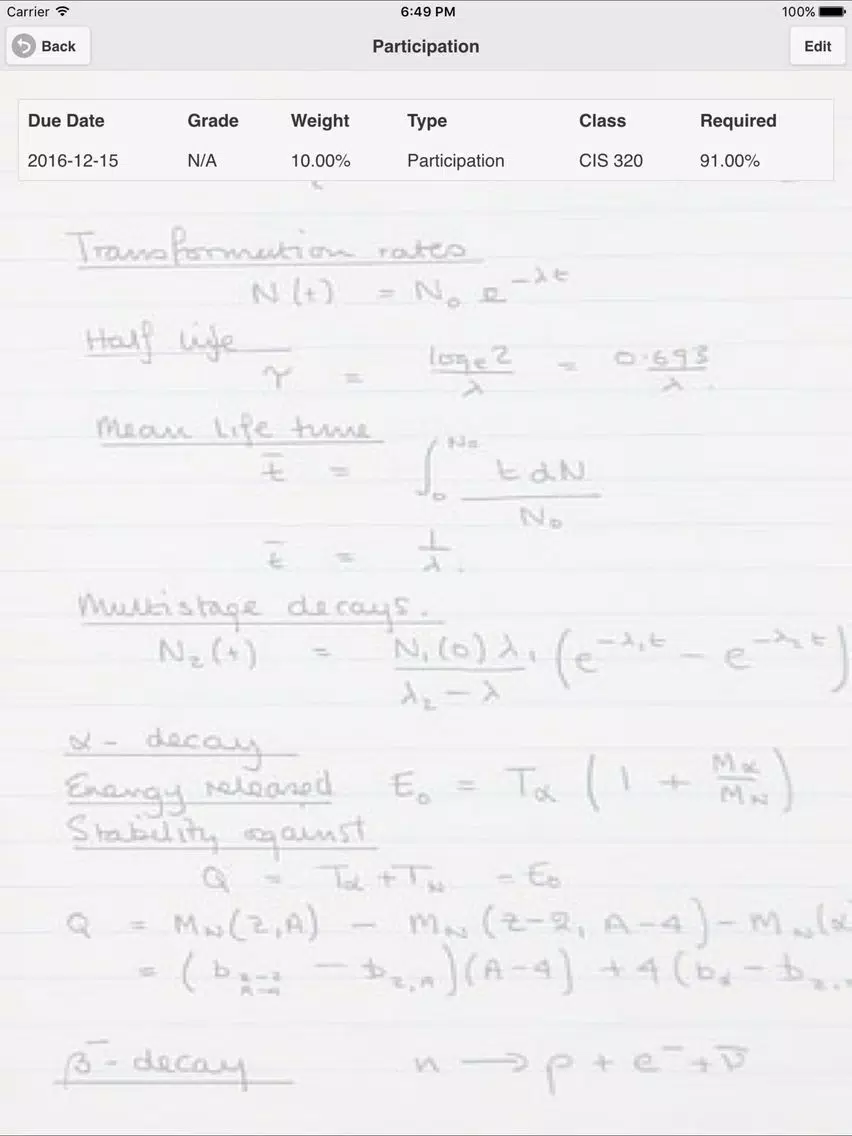 Carrier 6:49 PM 100%
Back Participation Edit
Due Date Grade Weight Type Class Required
2016-12-15 N/A 10.00% Participation CIS 320 91.00%
Transformation rates
N(t) = N₀ e^-λt
Half life
τ = logₑ2/λ = 0.693/λ.
Mean life time
t̄ = ∫₀^N₀ t dN / N₀
t̄ = 1/λ.
Multistage decays.
N₂(t) = N₁(0) λ₁ / λ₂ - λ (e^-λ₁t - e^-λ₂t)
α - decay
Energy released E₀ = Tα (1 + Mα/MN)
Stability against
Q = Tα + TN = E₀
Q = MN(Z,A) - MN(Z-2, A-4) - MN(α
= (b Z-2 A-4 - b Z,A)(A-4) + 4(bα - b Z,
β⁻ - decay n → p + e⁻ + ν̄